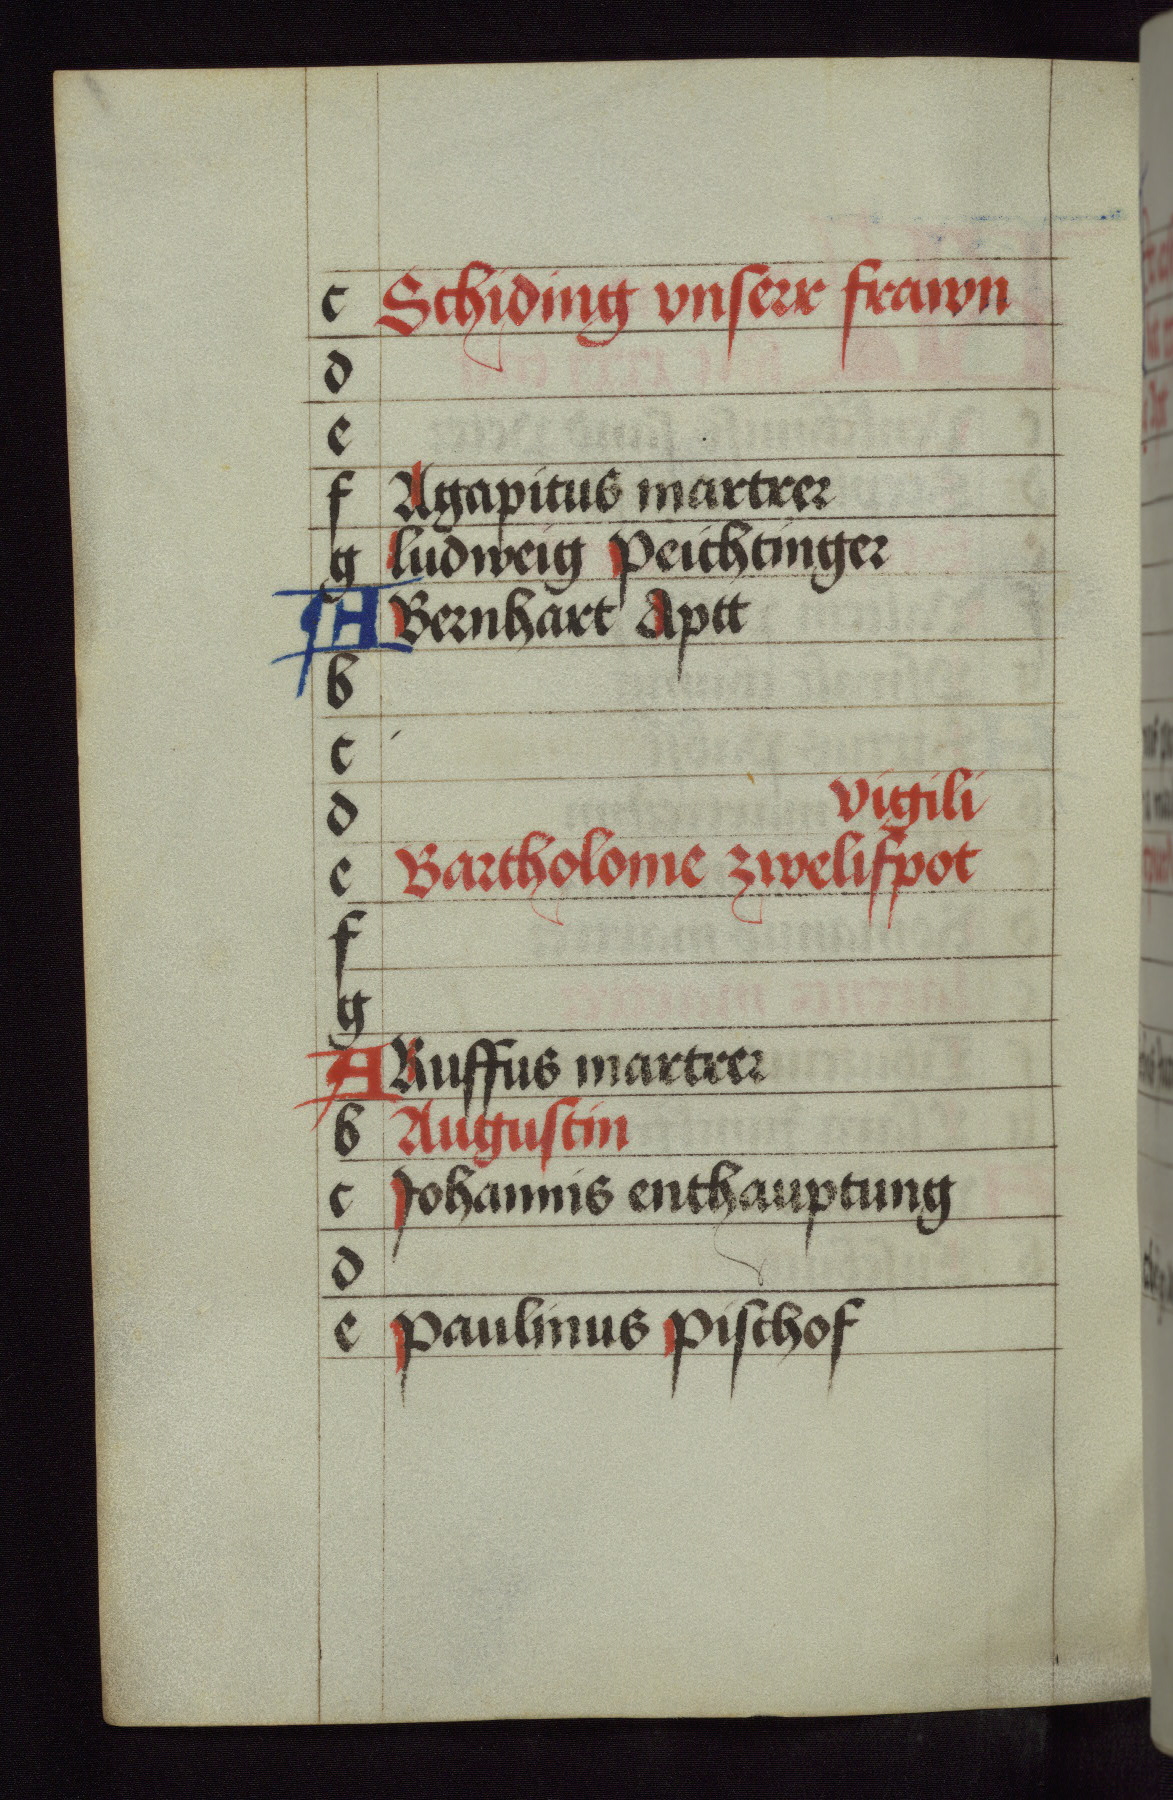 c Schiding vnserr frawn
d
e
f Agapitus martrer
g ludweig peichtinger
A Bernhart Aptt
b
c
d vigili
e Bartholome zwelifpot
f
g
A Ruffus martrer
b Augustin
c Johannis enthauptung
d
e paulinus pischof